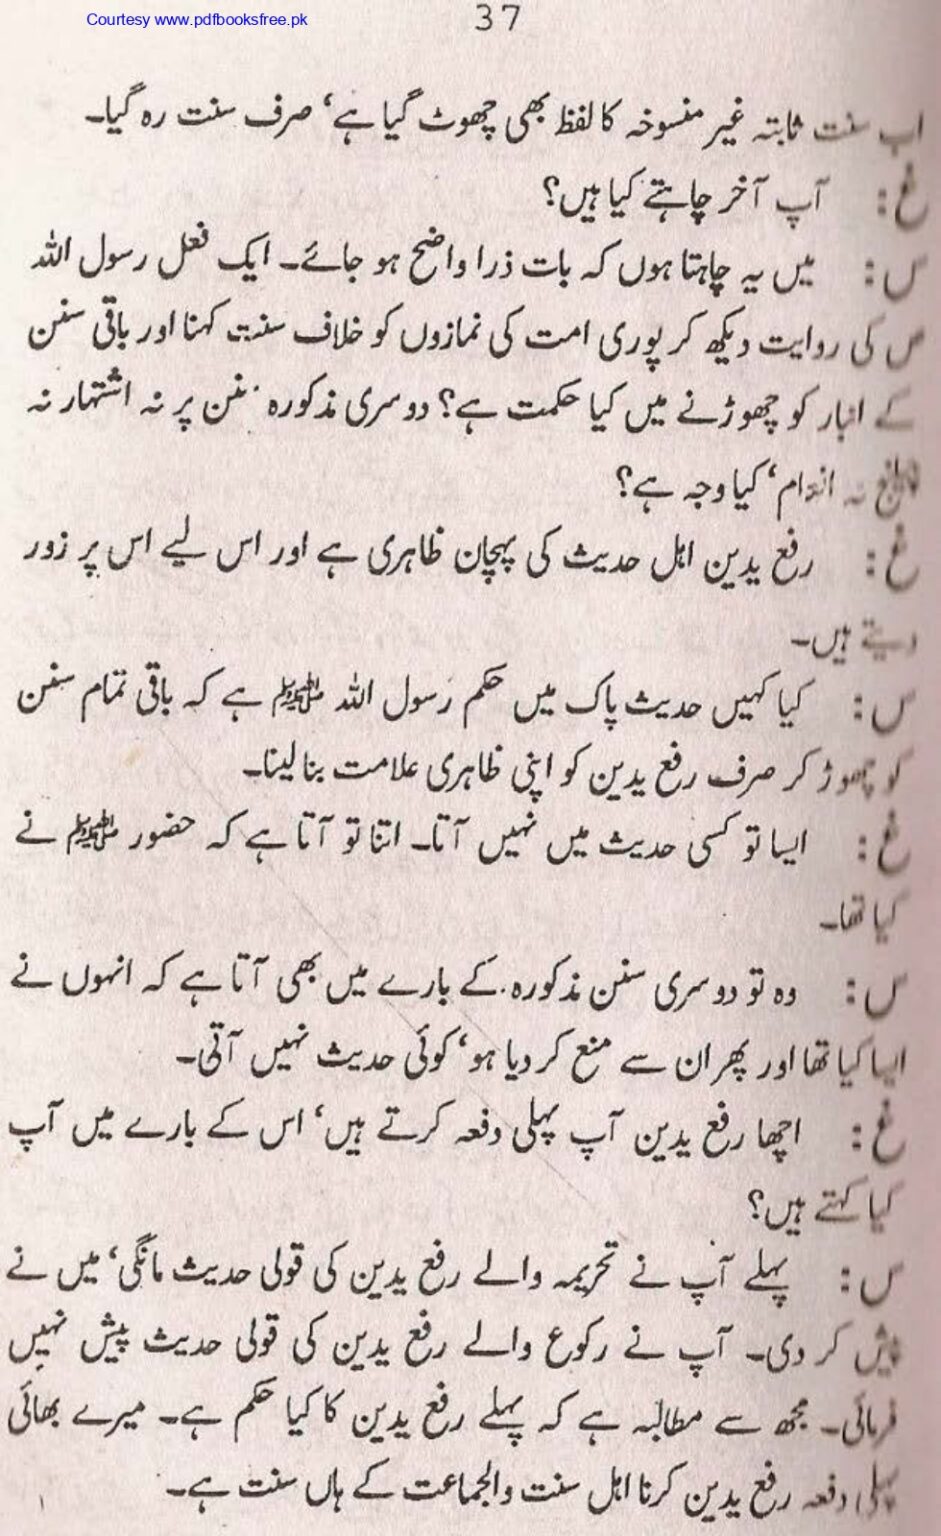 37
Courtesy www.pdfbooksfree.pk
اب سنت ثابتہ غیر منسوخہ کا لفظ بھی چھوٹ گیا ہے‘ صرف سنت رہ گیا۔
غ: آپ آخر چاہتے کیا ہیں؟
س: میں یہ چاہتا ہوں کہ بات ذرا واضح ہو جائے۔ ایک فعل رسول اللہ
ص کی روایت دیکھ کر پوری امت کی نمازوں کو خلاف سنت کہنا اور باقی سنن
کے انبار کو چھوڑنے میں کیا حکمت ہے؟ دوسری مذکورہ سنن پر نہ اشتہار نہ
چیلنج نہ انعام‘ کیا وجہ ہے؟
غ: رفع یدین اہل حدیث کی پہچان ظاہری ہے اور اس لیے اس پر زور
دیتے ہیں۔
س: کیا کہیں حدیث پاک میں حکم رسول اللہ ﷺ ہے کہ باقی تمام سنن
کو چھوڑ کر صرف رفع یدین کو اپنی ظاہری علامت بنا لینا۔
غ: ایسا تو کسی حدیث میں نہیں آتا۔ اتنا تو آتا ہے کہ حضور ﷺ نے
کیا تھا۔
س: وہ تو دوسری سنن مذکورہ کے بارے میں بھی آتا ہے کہ انہوں نے
ایسا کیا تھا اور پھر ان سے منع کر دیا ہو‘ کوئی حدیث نہیں آتی۔
غ: اچھا رفع یدین آپ پہلی دفعہ کرتے ہیں‘ اس کے بارے میں آپ
کیا کہتے ہیں؟
س: پہلے آپ نے تحریمہ والے رفع یدین کی قولی حدیث مانگی‘ میں نے
پیش کر دی۔ آپ نے رکوع والے رفع یدین کی قولی حدیث پیش نہیں
فرمائی۔ مجھ سے مطالبہ ہے کہ پہلے رفع یدین کا کیا حکم ہے۔ میرے بھائی
پہلی دفعہ رفع یدین کرنا اہل سنت والجماعت کے ہاں سنت ہے۔